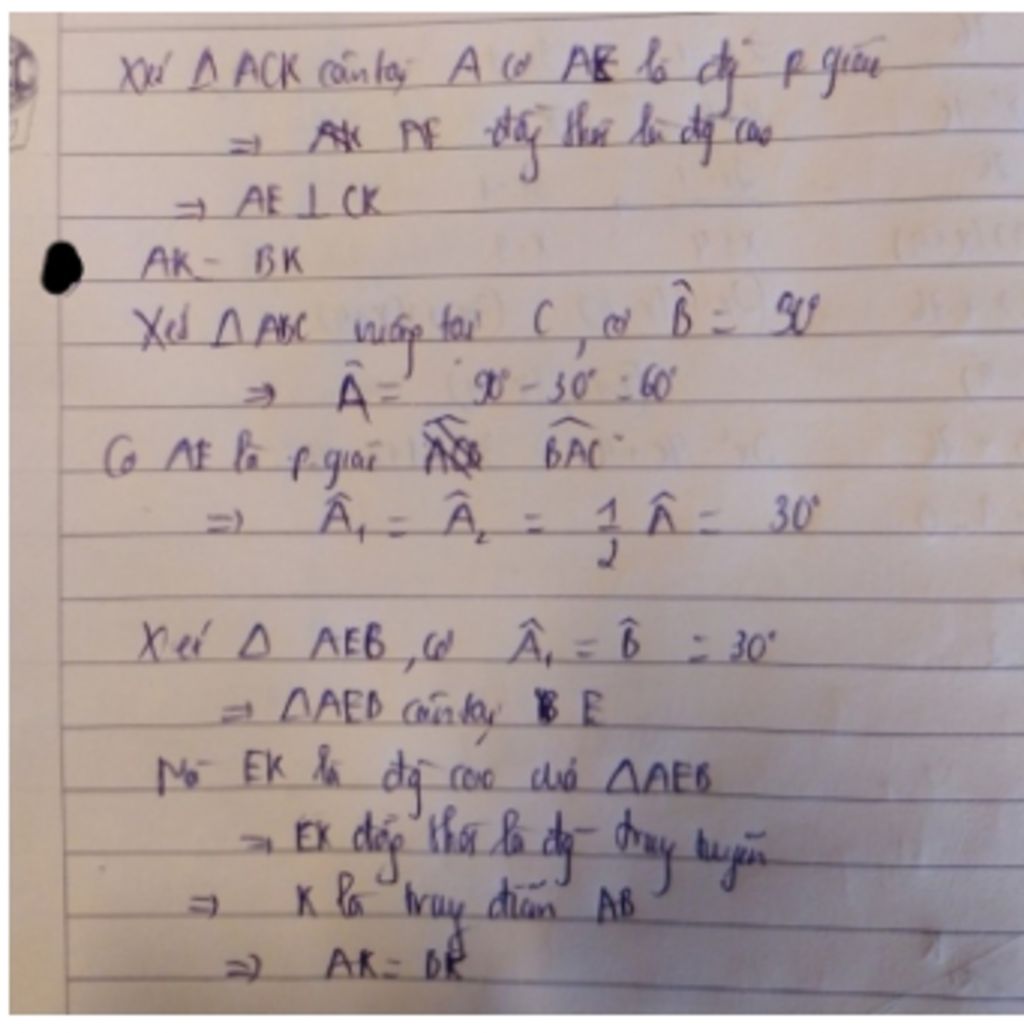 Xét Δ ACK cân tại A có AE là đg p. giác
⇒ AE đồng thời là đg cao
⇒ AE ⊥ CK
AK = BK
Xét Δ ABC vuông tại C, có B̂ = 30°
⇒ Â = 90° - 30° = 60°
Có AE là p. giác BAC
⇒ Â₁ = Â₂ = 1/2 Â = 30°
Xét Δ AEB, có Â₁ = B̂ = 30°
⇒ ΔAEB cân tại E
Mà EK là đg cao của ΔAEB
⇒ EK đồng thời là đg trung tuyến
⇒ K là trung điểm AB
⇒ AK = BK